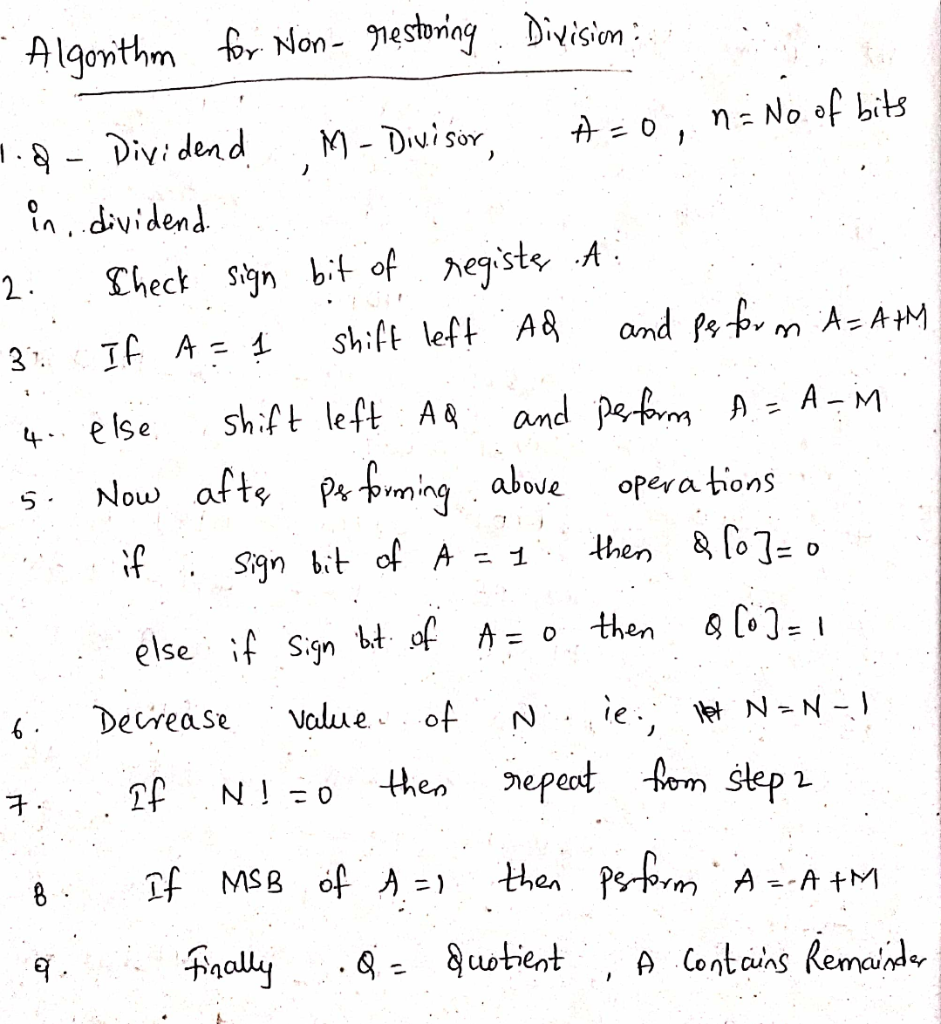 Algorithm for Non-restoring Division:
1. Q - Dividend, M - Divisor, A = 0, n = No of bits
in dividend.
2. Check sign bit of register A.
3. If A = 1 shift left AQ and perform A = A+M
4. else shift left AQ and perform A = A-M
5. Now after performing above operations
if sign bit of A = 1 then Q[0] = 0
else if sign bit of A = 0 then Q[0] = 1
6. Decrease value of N ie., N = N-1
7. If N! = 0 then repeat from step 2
8. If MSB of A = 1 then perform A = A+M
9. Finally Q = Quotient, A Contains Remainder